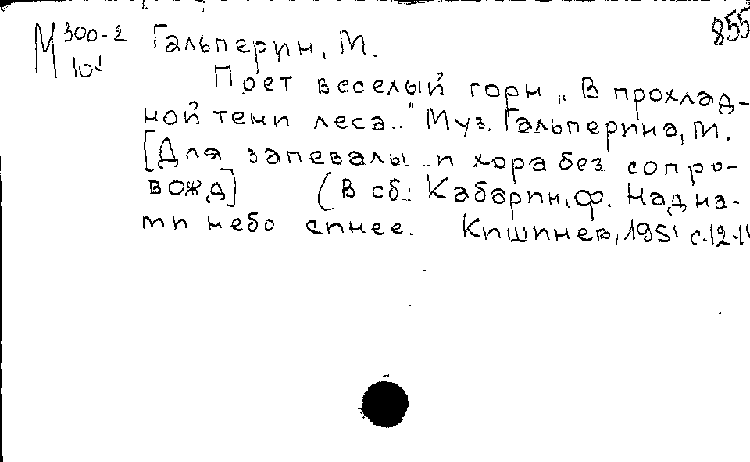 855
М 300-2 Гальперин, М.
101
Поет веселый горн „В прохлад-
ной тени леса..." Муз. Гальперина, М.
[Для запевалы и хора без сопро-
вожд] (В сб.: Кабарин, Ф. Над на-
ми небо синее. Кишинев, 1951 с.12-1